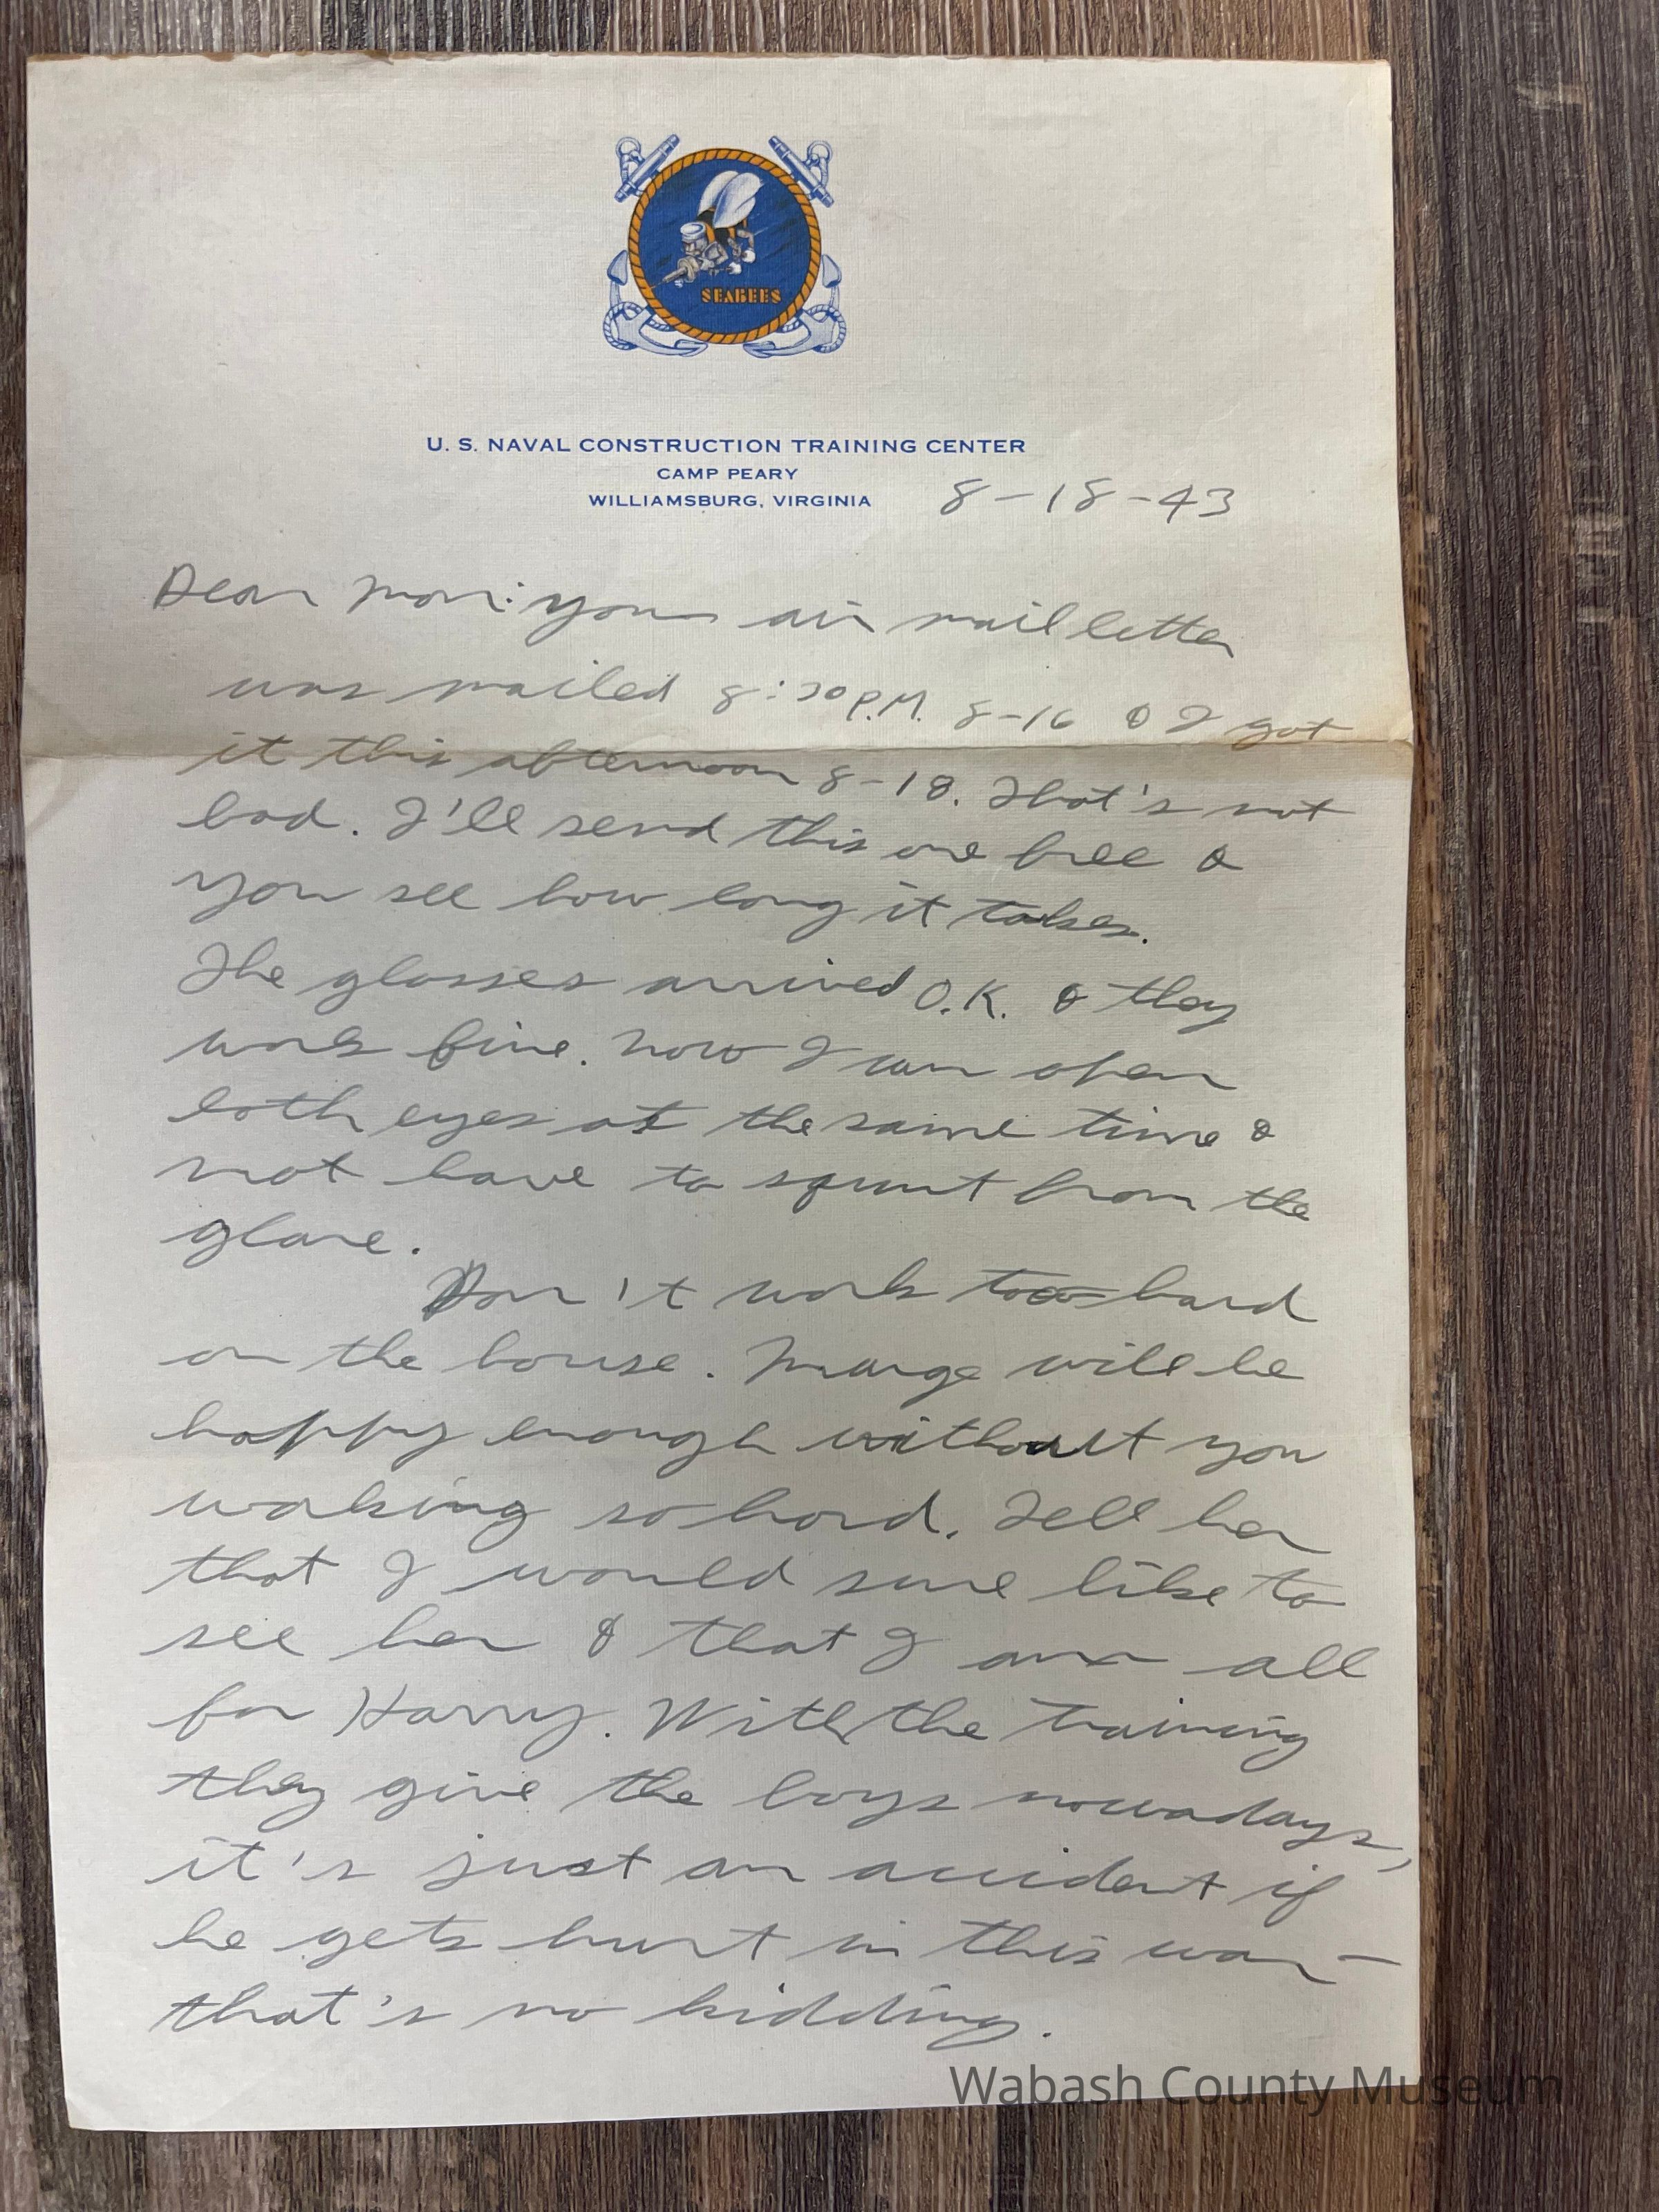 SEABEES
U. S. NAVAL CONSTRUCTION TRAINING CENTER
CAMP PEARY
WILLIAMSBURG, VIRGINIA 8-18-43
Dear Mom: your air mail letter
was mailed 8:30 P.M. 8-16 & I got
it this afternoon 8-18. That's not
bad. I'll send this one free &
you see how long it takes.
The glasses arrived O.K. & they
work fine. Now I can open
both eyes at the same time &
not have to squint from the
glare.
Don't work too hard
on the house. Marge will be
happy enough without you
working so hard. Tell her
that I would sure like to
see her & that I am all
for Harry. With the training
they give the boys nowadays,
it's just an accident if
he gets hurt in this war—
that's no kidding.
Wabash County Museum